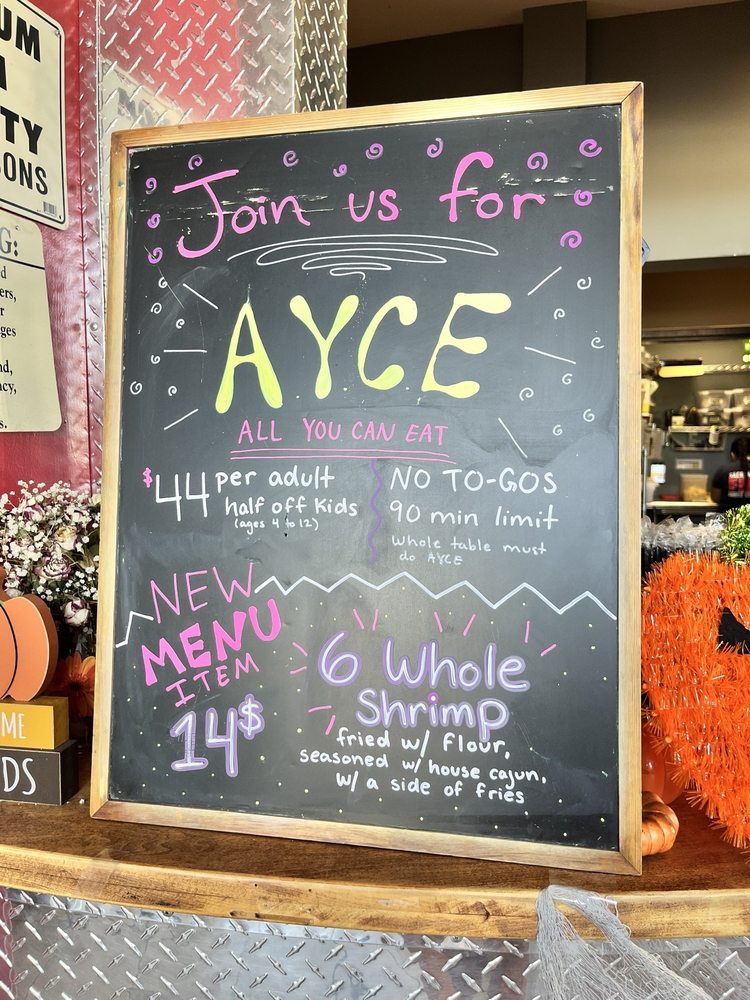 UM
TY
SONS
G:
d
ers,
r
ges
nd,
cy,
s.
Join us for
AYCE
ALL YOU CAN EAT
$44 per adult
half off kids
(ages 4 to 12)
NO TO-GOS
90 min limit
Whole table must
do AYCE
NEW
MENU
ITEM
14$
6 Whole
Shrimp
fried w/ flour,
seasoned w/ house cajun,
w/ a side of fries
ME
DS